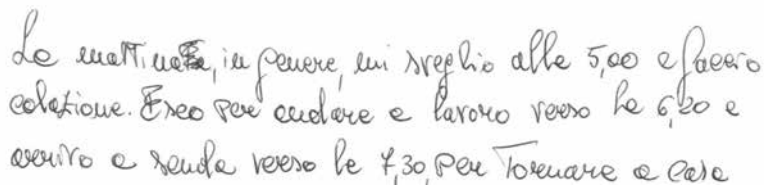 La mattina, in genere, mi sveglio alle 5,00 e faccio
colazione. Esco per andare a lavoro verso le 6,20 e
arrivo a scuola verso le 7,30, per Tornare a casa